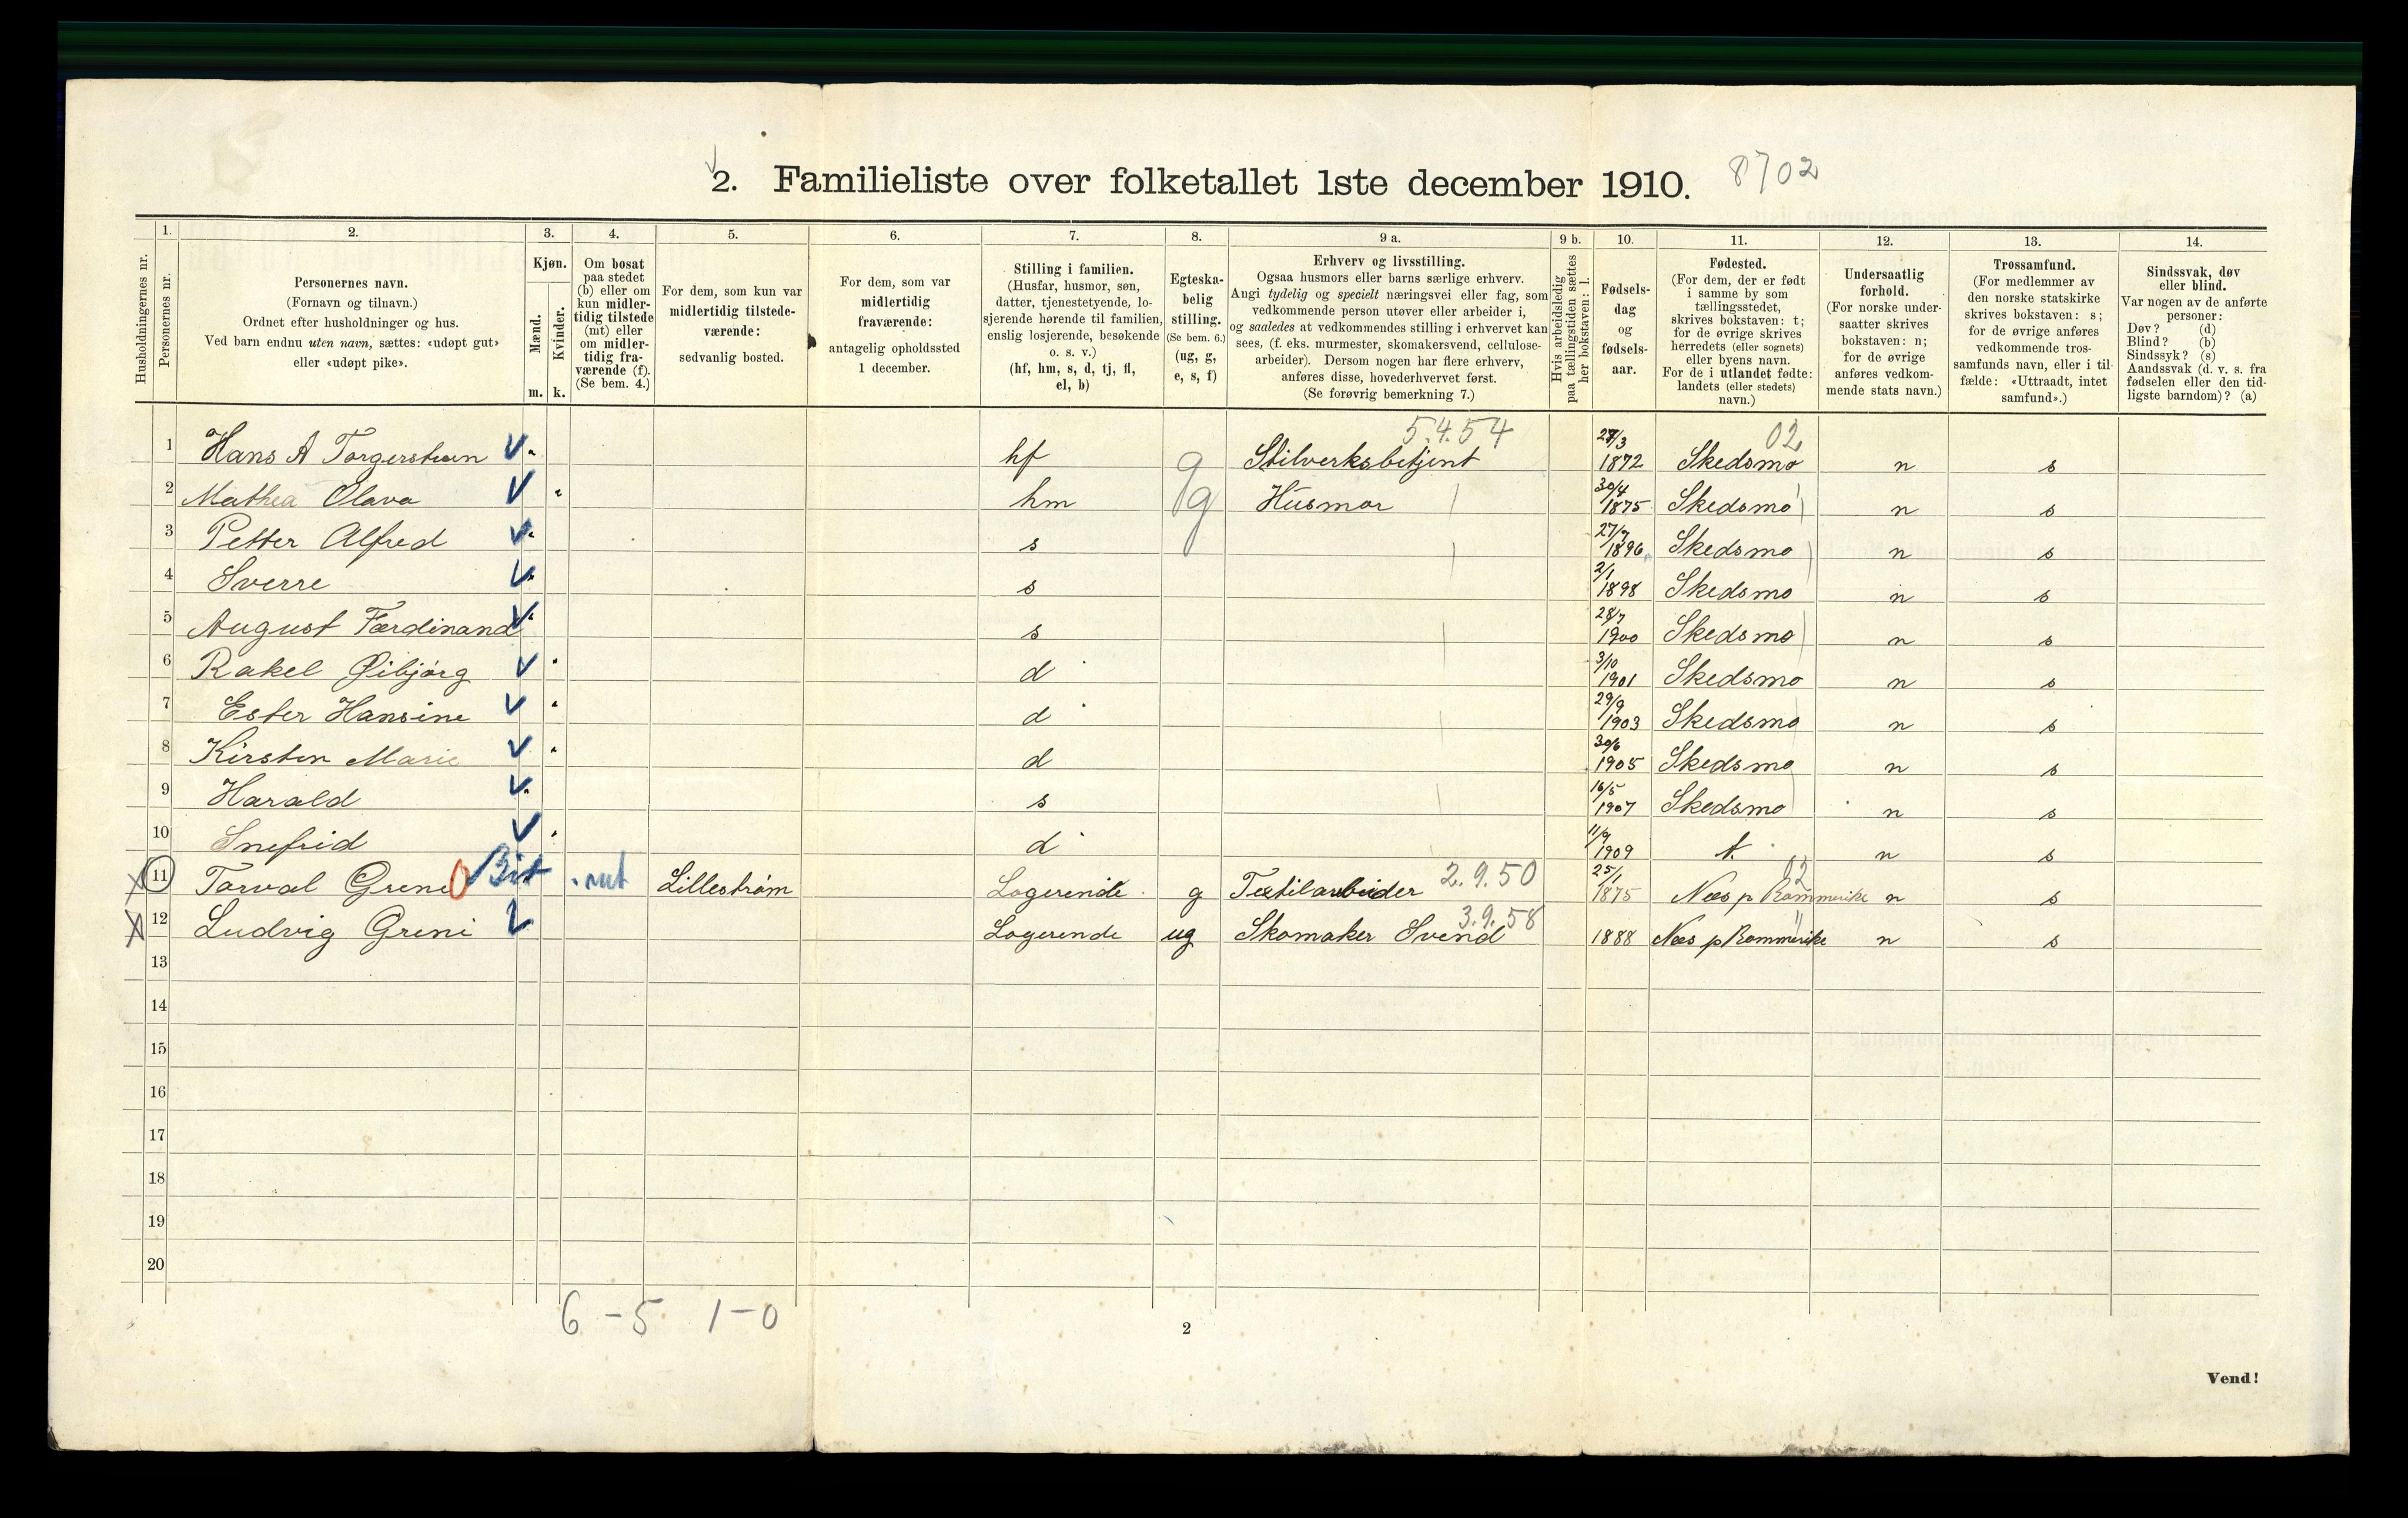 2. Familieliste over folketallet 1ste december 1910. 8702
Husholdningernes nr.
1.
Personernes nr.
2.
Personernes navn.
(Fornavn og tilnavn.)
Ordnet efter husholdninger og hus.
Ved barn endnu uten navn, sættes: «udøpt gut»
eller «udøpt pike».
3.
Kjøn.
Mænd.
Kvinder.
m. k.
4.
Om bosat
paa stedet
(b) eller om
kun midler-
tidig tilstede
(mt) eller
om midler-
tidig fra-
værende (f).
(Se bem. 4.)
5.
For dem, som kun var
midlertidig tilstede-
værende:
sedvanlig bosted.
6.
For dem, som var
midlertidig
fraværende:
antagelig opholdssted
1 december.
7.
Stilling i familien.
(Husfar, husmor, søn,
datter, tjenestetyende, lo-
sjerende hørende til familien,
enslig losjerende, besøkende
o. s. v.)
(hf, hm, s, d, tj, fl,
el, b)
8.
Egteska-
belig
stilling.
(Se bem. 6.)
(ug, g,
e, s, f)
9 a.
Erhverv og livsstilling.
Ogsaa husmors eller barns særlige erhverv.
Angi tydelig og specielt næringsvei eller fag, som
vedkommende person utøver eller arbeider i,
og saaledes at vedkommendes stilling i erhvervet kan
sees, (f. eks. murmester, skomakersvend, cellulose-
arbeider). Dersom nogen har flere erhverv,
anføres disse, hovederhvervet først.
(Se forøvrig bemerkning 7.)
9 b.
Hvis arbeidsledig
paa tællingstiden sættes
her bokstaven: l.
10.
Fødsels-
dag
og
fødsels-
aar.
11.
Fødested.
(For dem, der er født
i samme by som
tællingsstedet,
skrives bokstaven: t;
for de øvrige skrives
herredets (eller sognets)
eller byens navn.
For de i utlandet fødte:
landets (eller stedets)
navn.)
12.
Undersaatlig
forhold.
(For norske under-
saatter skrives
bokstaven: n;
for de øvrige
anføres vedkom-
mende stats navn.)
13.
Trossamfund.
(For medlemmer av
den norske statskirke
skrives bokstaven: s;
for de øvrige anføres
vedkommende tros-
samfunds navn, eller i til-
fælde: «Uttraadt, intet
samfund».)
14.
Sindssvak, døv
eller blind.
Var nogen av de anførte
personer:
Døv? (d)
Blind? (b)
Sindssyk? (s)
Aandssvak (d. v. s. fra
fødselen eller den tid-
ligste barndom)? (a)
5.4.54 02
1 Hans A Torgersteen hf g Stilverksbetjent 1872 Skedsmo n s
2 Mathea Olava hm g Husmor 30/4 1875 Skedsmo n s
3 Petter Alfred s 27/7 1896 Skedsmo n s
4 Sverre s 2/1 1898 Skedsmo n s
5 August Færdinand s 28/7 1900 Skedsmo n s
6 Rakel d 3/10 1901 Skedsmo n s
7 Ester Hansine d 29/9 1903 Skedsmo n s
8 Kirsten Marie d 30/6 1905 Skedsmo n s
9 Harald s 16/5 1907 Skedsmo n s
10 Snefrid d 11/9 1909 t. n s
11 Torval Greni mt Lillestrøm Logerende g Textilarbeider 2.9.50 25/1 1875 Næs p Rommerike 02 n s
12 Ludvig Greni Logerende ug Skomaker Svend 3.9.58 1888 Næs p Rommerike n s
13
14
15
16
17
18
19
20
6 - 5 1 - 0
2
Vend!